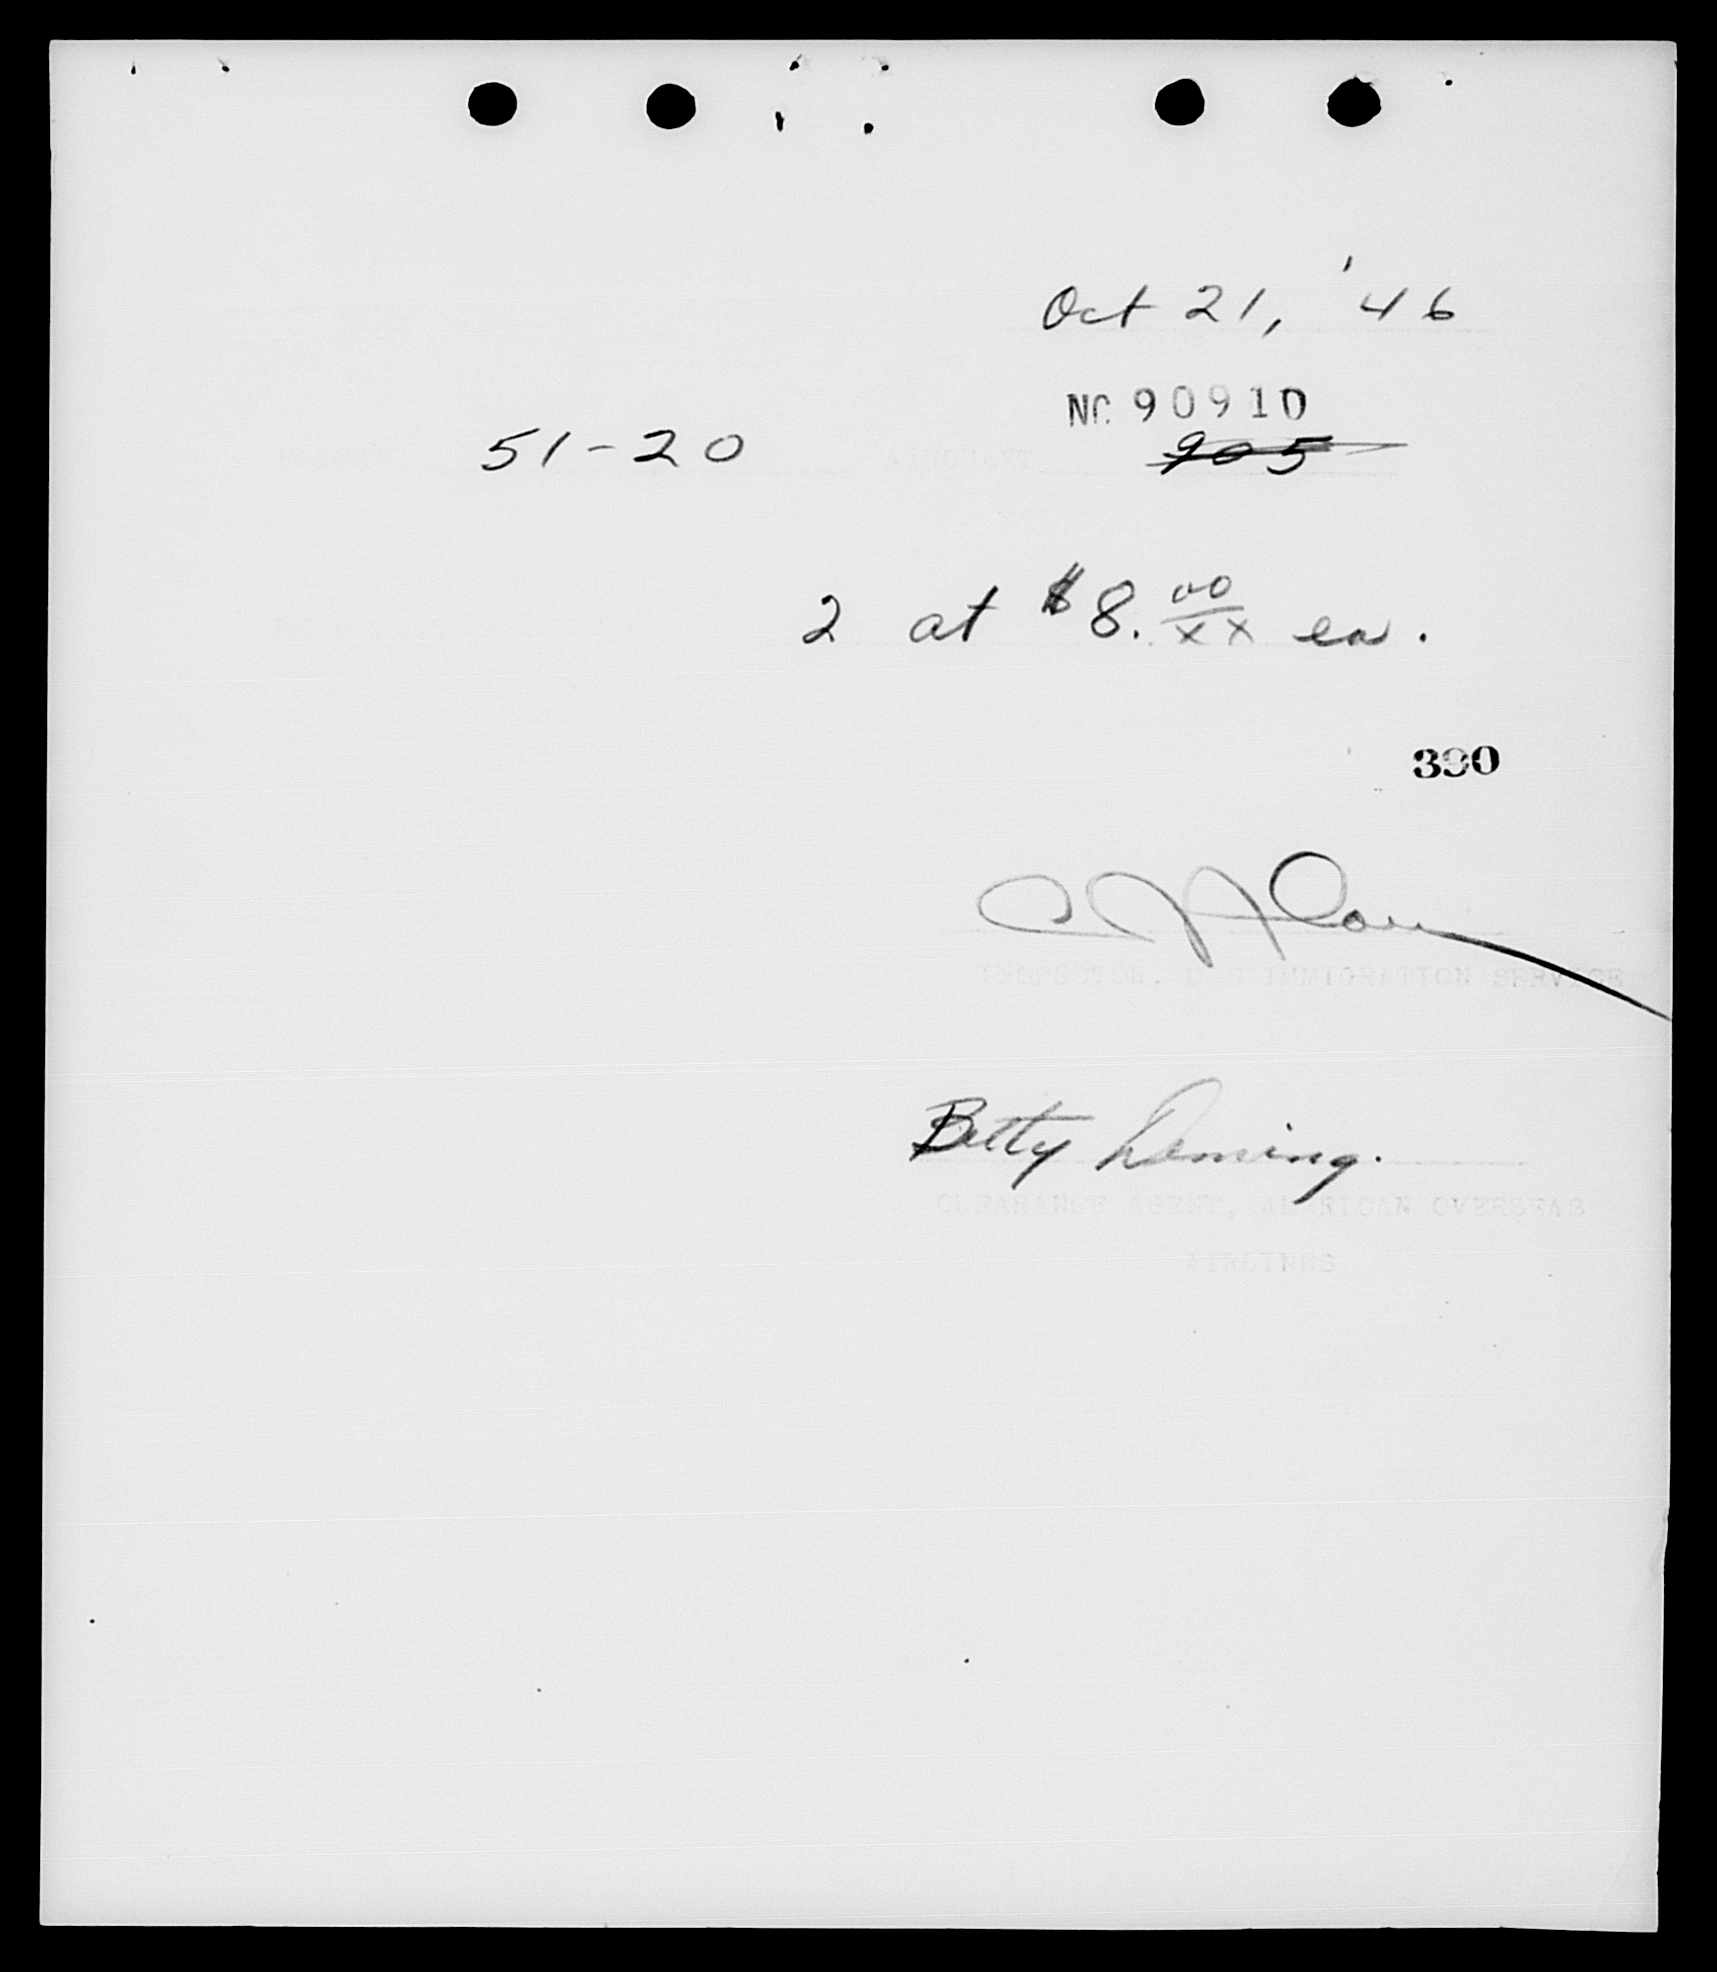 Oct 21, '46
NC 90910
51-20 AIRCRAFT 905
2 at $8. 00/xx ea.
390
INSPECTOR, U S IMMIGRATION SERVICE
Betty Deming.
CLEARANCE AGENT, AMERICAN OVERSEAS
AIRLINES